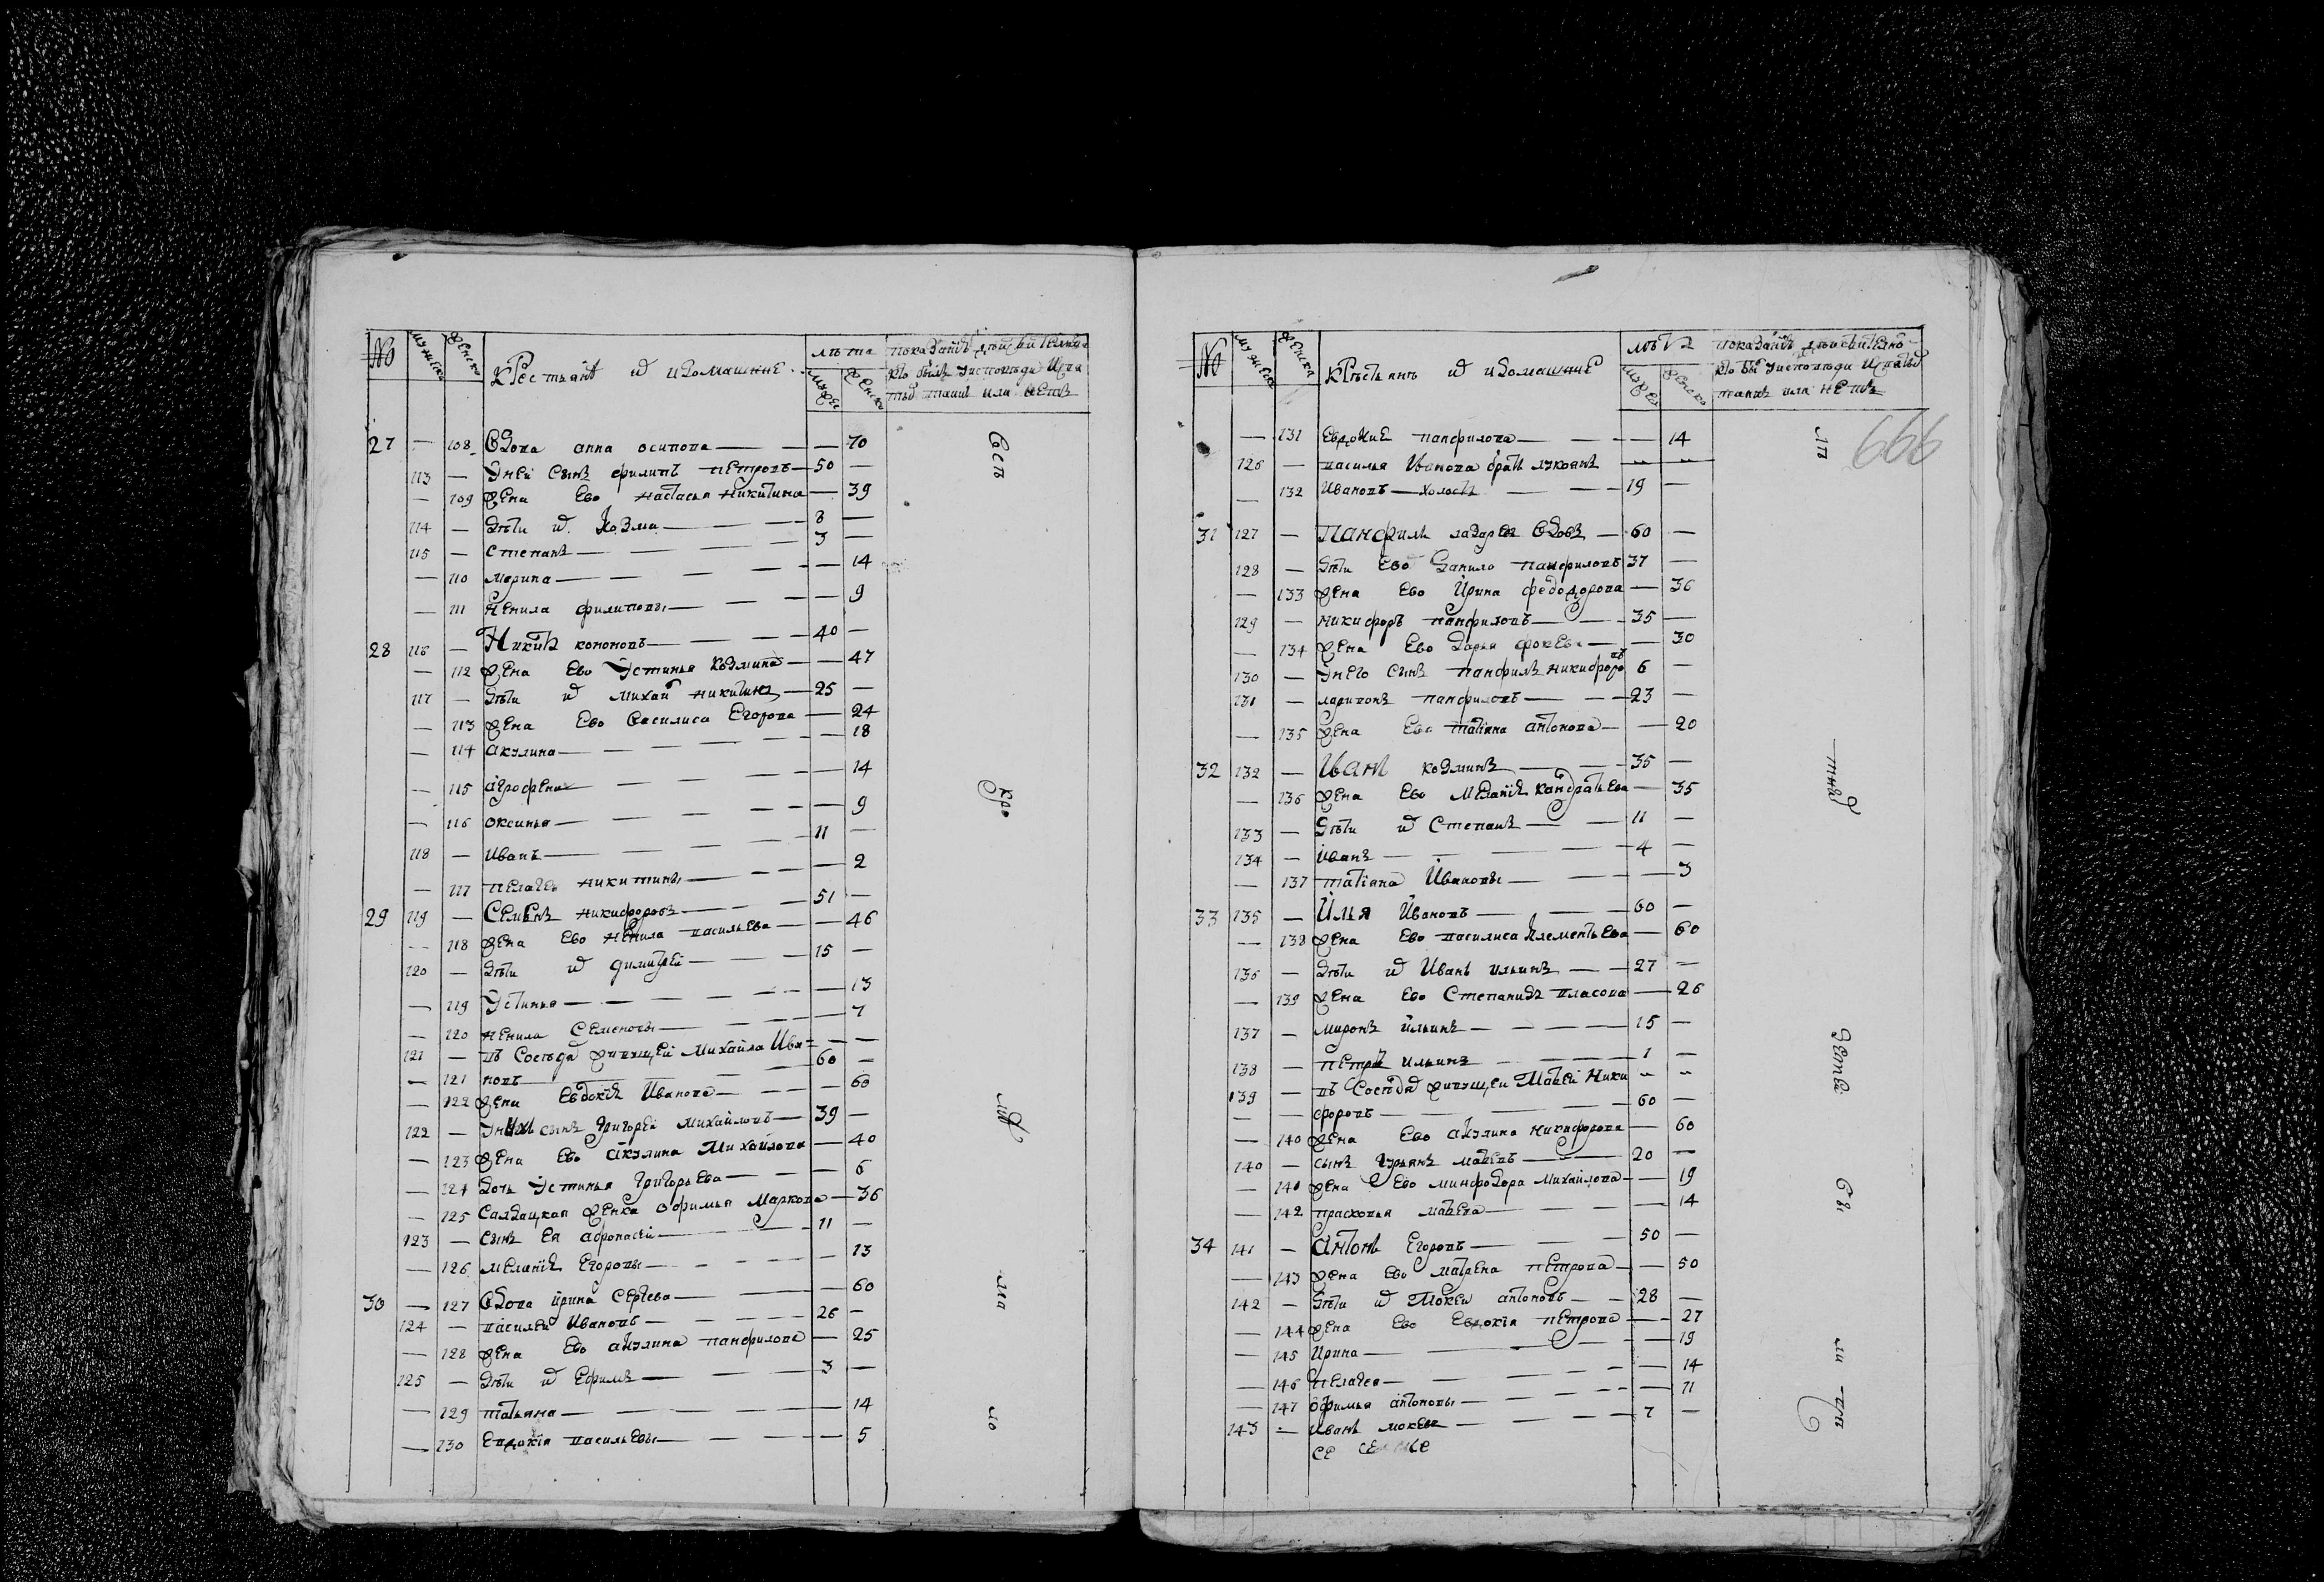 № мужеска женска крестьянъ и ихъ домашние лѣта мужес женска показаніе действителна
кто былъ уисповѣди и святыхъ таинъ или нетъ
27 — 108 вдова анна осипова — 70
113 — Унеи сынъ филипъ петровъ 50 —
— 109 жена ево настасья никитина — 39
114 — дѣти их Козма 8 —
115 — степанъ 3 —
— 110 марина — 14
— 111 ненила филиповы — 9
28 116 — Никита кононовъ 40 —
— 112 жена ево Устинья козмина — 47
117 — дѣти их михаил никитинъ 25 —
— 113 жена ево василиса Егорова — 24
— 114 акулина — 18
— 115 агрофена — 14
— 116 оксинья — 9
118 — иванъ 11 —
— 117 пелагея никитины — 2
29 119 — Семенъ никифоровъ 51 —
— 118 жена ево ненила васильева — 46
120 — дѣти их димитрей 15 —
— 119 Устинья — 13
— 120 ненила семеновы — 7
121 — въ соседах живущей михайла Ива — —
— 121 новъ 60 —
— 122 жена евдокия Иванова — 60
122 — Уних сынъ григорей михайловъ 39 —
— 123 жена ево акулина михайлова — 40
— 124 дочь Устинья григорьева — 6
— 125 салдацкая женка офимья маркова — 36
123 — сынъ ея афонасей 11 —
— 126 мелания Егоровы — 13
30 — 127 вдова ирина сергева — 60
124 — василеи Ивановъ 26 —
— 128 жена ево акулина панфилова — 25
125 — дѣти их Ефимъ 3 —
— 129 татьяна — 14
— 130 евдокия васильевы — 5
№ мужеска женска крестьянъ и ихъ домашние лѣта мужес женска показаніе действително
кто бы уисповѣди и святых
таинъ или нетъ
666
— 131 евдокия панфилова — 14
126 — василья Иванова братъ лукоянъ
— 132 Ивановъ холостъ 19 —
31 127 — Панфилъ лазаревъ вдовъ 60 —
128 — дѣти ево данило панфиловъ 37 —
— 133 жена ево Ирина федодорова — 36
129 — никифоръ панфиловъ 35 —
— 134 жена ево дарья фокева — 30
130 — Унего сынъ панфилъ никифоровъ 6 —
131 — ларионъ панфиловъ 23 —
— 135 жена ево татiана антонова — 20
32 132 — Иванъ козминъ 35 —
— 136 жена ево мелания кандратьева — 35
133 — дѣти их степанъ 11 —
134 — иванъ 4 —
— 137 татiана Ивановы — 3
33 135 — Илья Ивановъ 60 —
— 138 жена ево василиса клементьева — 60
136 — дѣти их Иванъ ильинъ 27 —
— 139 жена ево степанида власова — 26
137 — миронъ ильинъ 15 —
138 — петръ ильинъ 1 —
139 — въ соседах живущеи матвей Ники
— — форовъ 60 —
— 140 жена ево акулина никифорова — 60
140 — сынъ гурьянъ матвевъ 20 —
— 141 жена ево минфодора михайлова — 19
— 142 прасковья матвева — 14
34 141 — Антонъ Егоровъ 50 —
— 143 жена ево матрена петрова — 50
142 — дѣти их Мокеи антоновъ 28 —
— 144 жена ево Евдокiя петрова — 27
— 145 Ирина — 19
— 146 пелагея — 14
— 147 офимья антоновы — 11
143 — Иванъ мокевъ 7 —